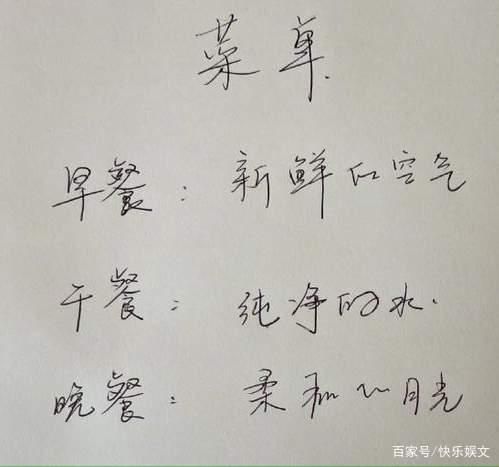 菜单.
早餐：新鲜的空气
午餐：纯净的水.
晚餐：柔和的月光
百家号/快乐娱文